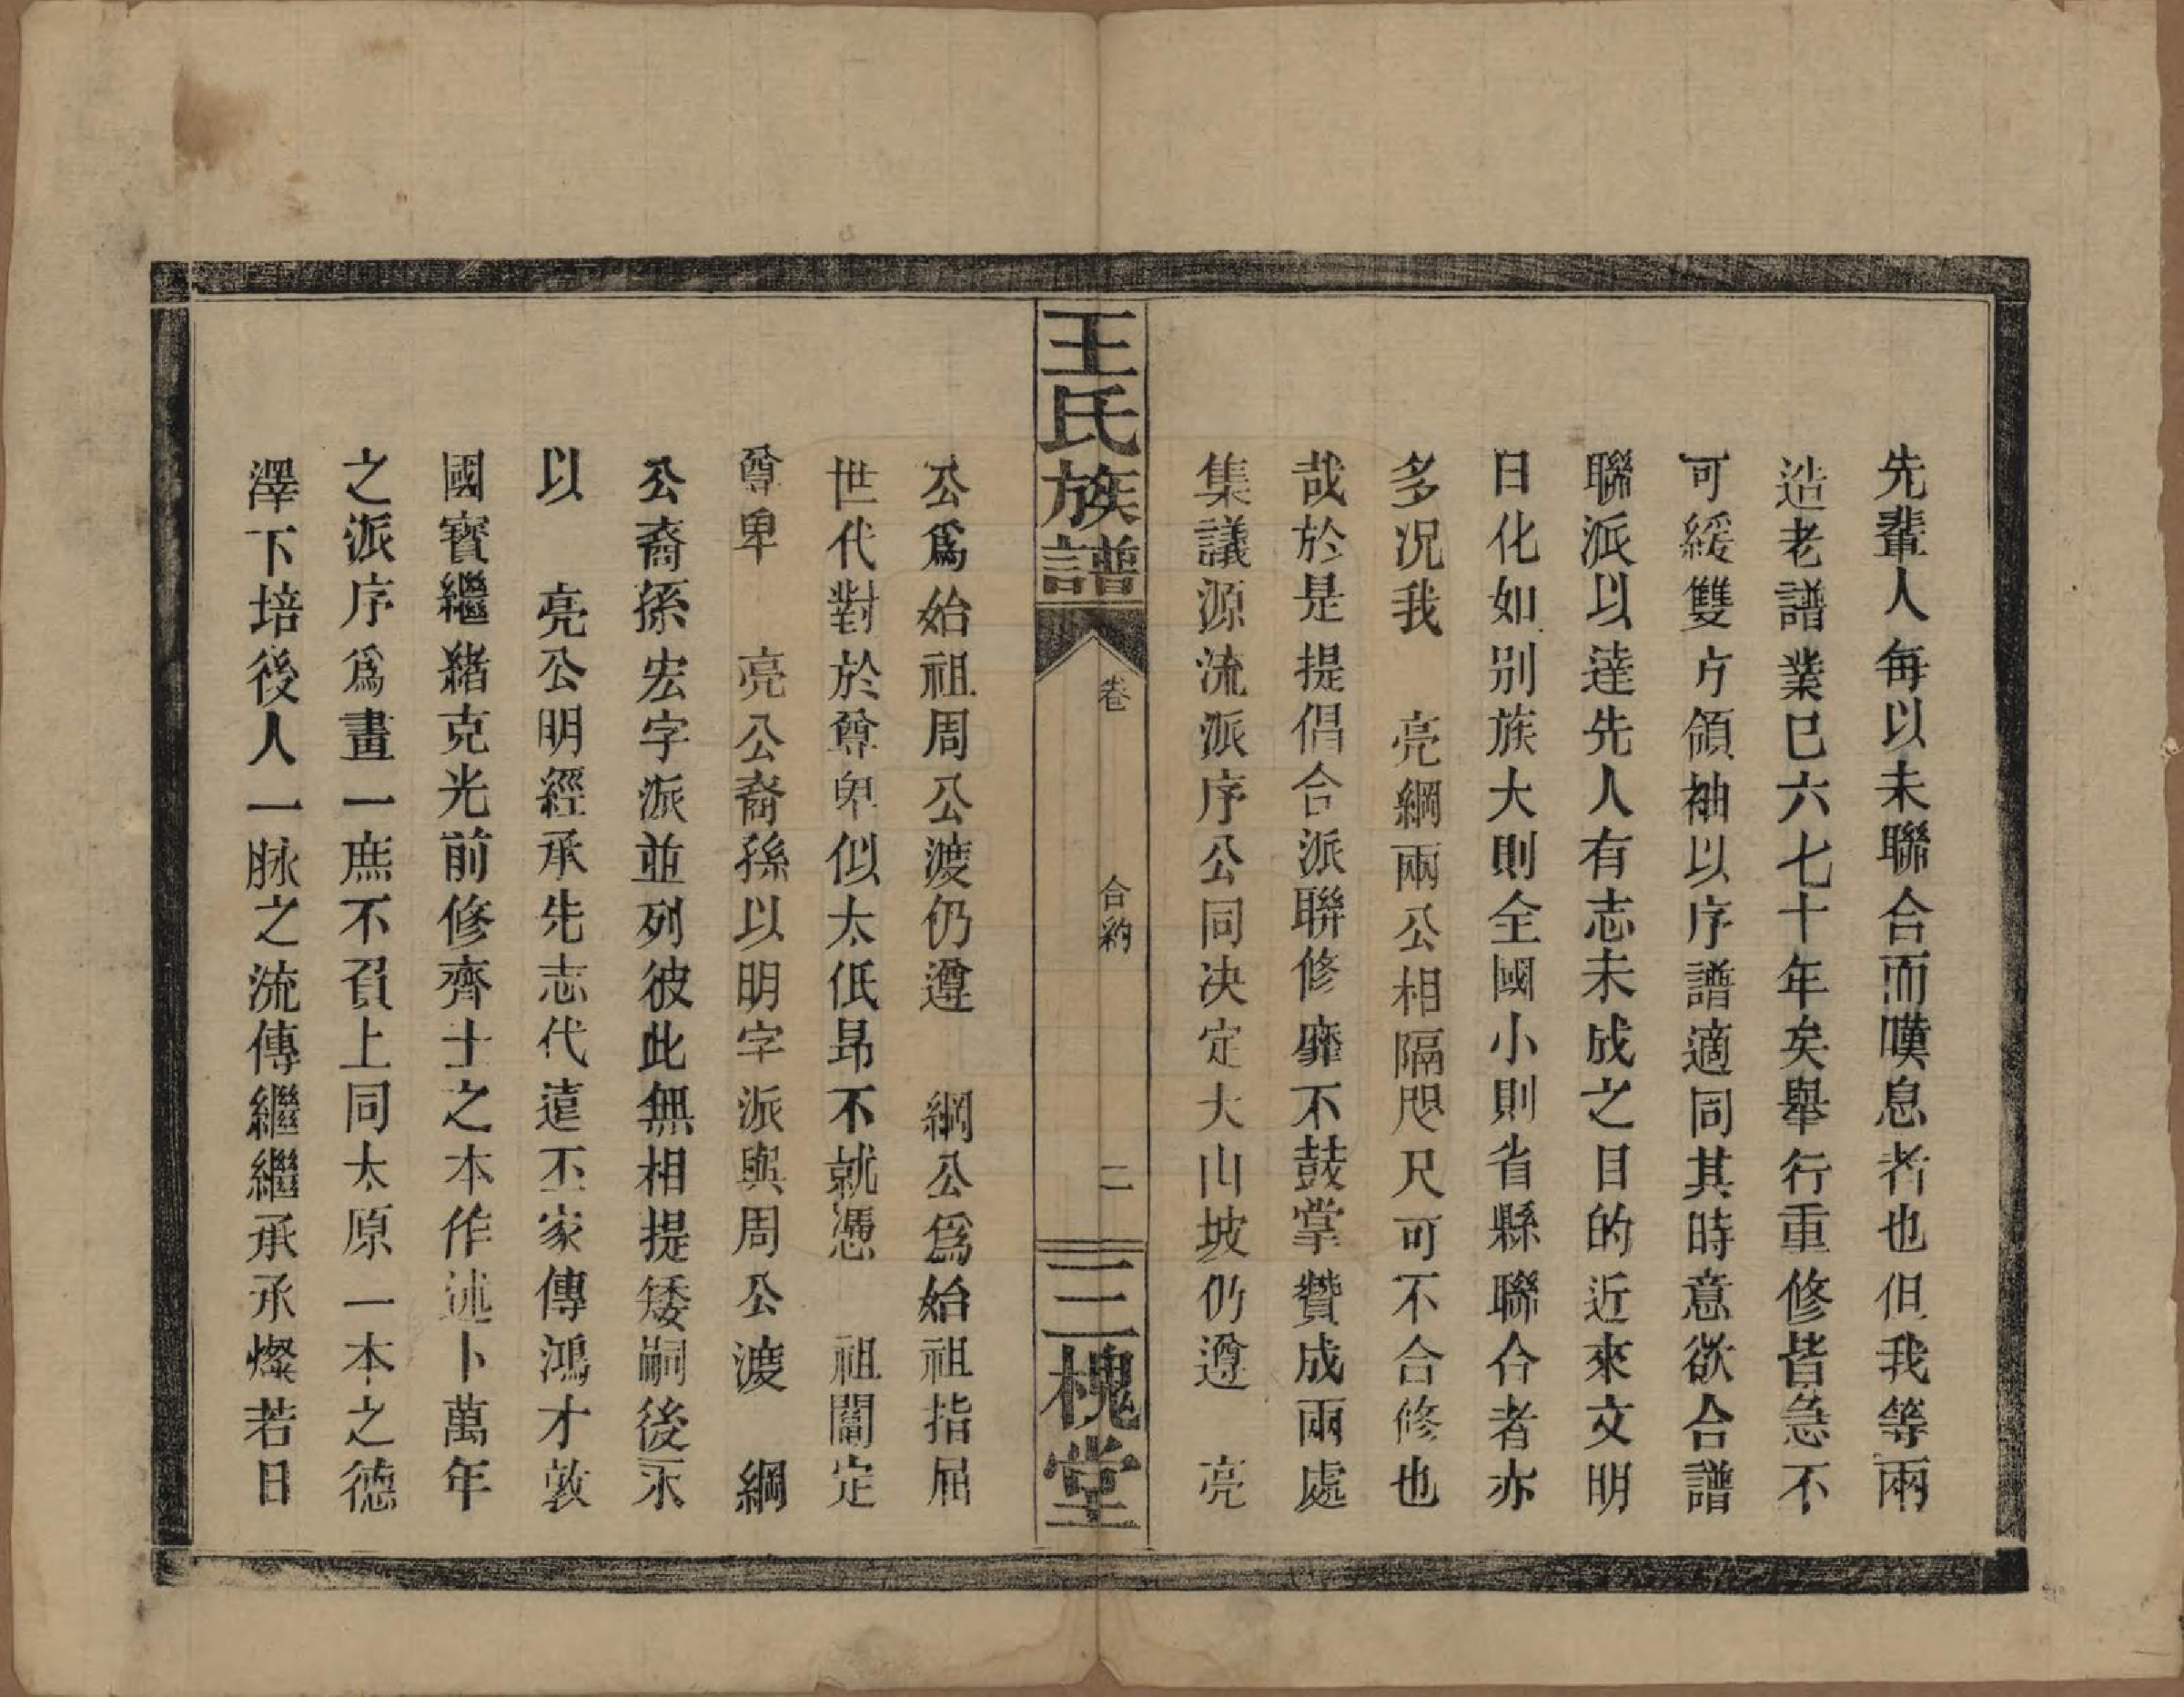 先輩人每以未聯合而嘆息者也但我等兩
造老譜業已六七十年矣舉行重修皆急不
可緩雙方領袖以序譜適同其時意欲合譜
聯派以達先人有志未成之目的近來文明
日化如别族大則全國小則省縣聯合者亦
多况我　亮綱兩公相隔咫尺可不合修也
哉於是提倡合派聯修靡不鼓掌贊成兩處
集議源流派序公同决定大山坡仍遵　亮
王氏族譜　卷　合約　二　三槐堂
公爲始祖周公渡仍遵　綱公爲始祖指屈
世代對於尊卑似太低昂不就憑　祖闔定
尊卑　亮公裔孫以明字派與周公渡　綱
公裔孫宏字派並列彼此無相提矮嗣後永
以　亮公明經承先志代遠丕家傳鴻才敦
國寶繼緒克光前修齊士之本作述卜萬年
之派序爲畫一庶不負上同太原一本之德
澤下培後人一脉之流傳繼繼承承燦若日